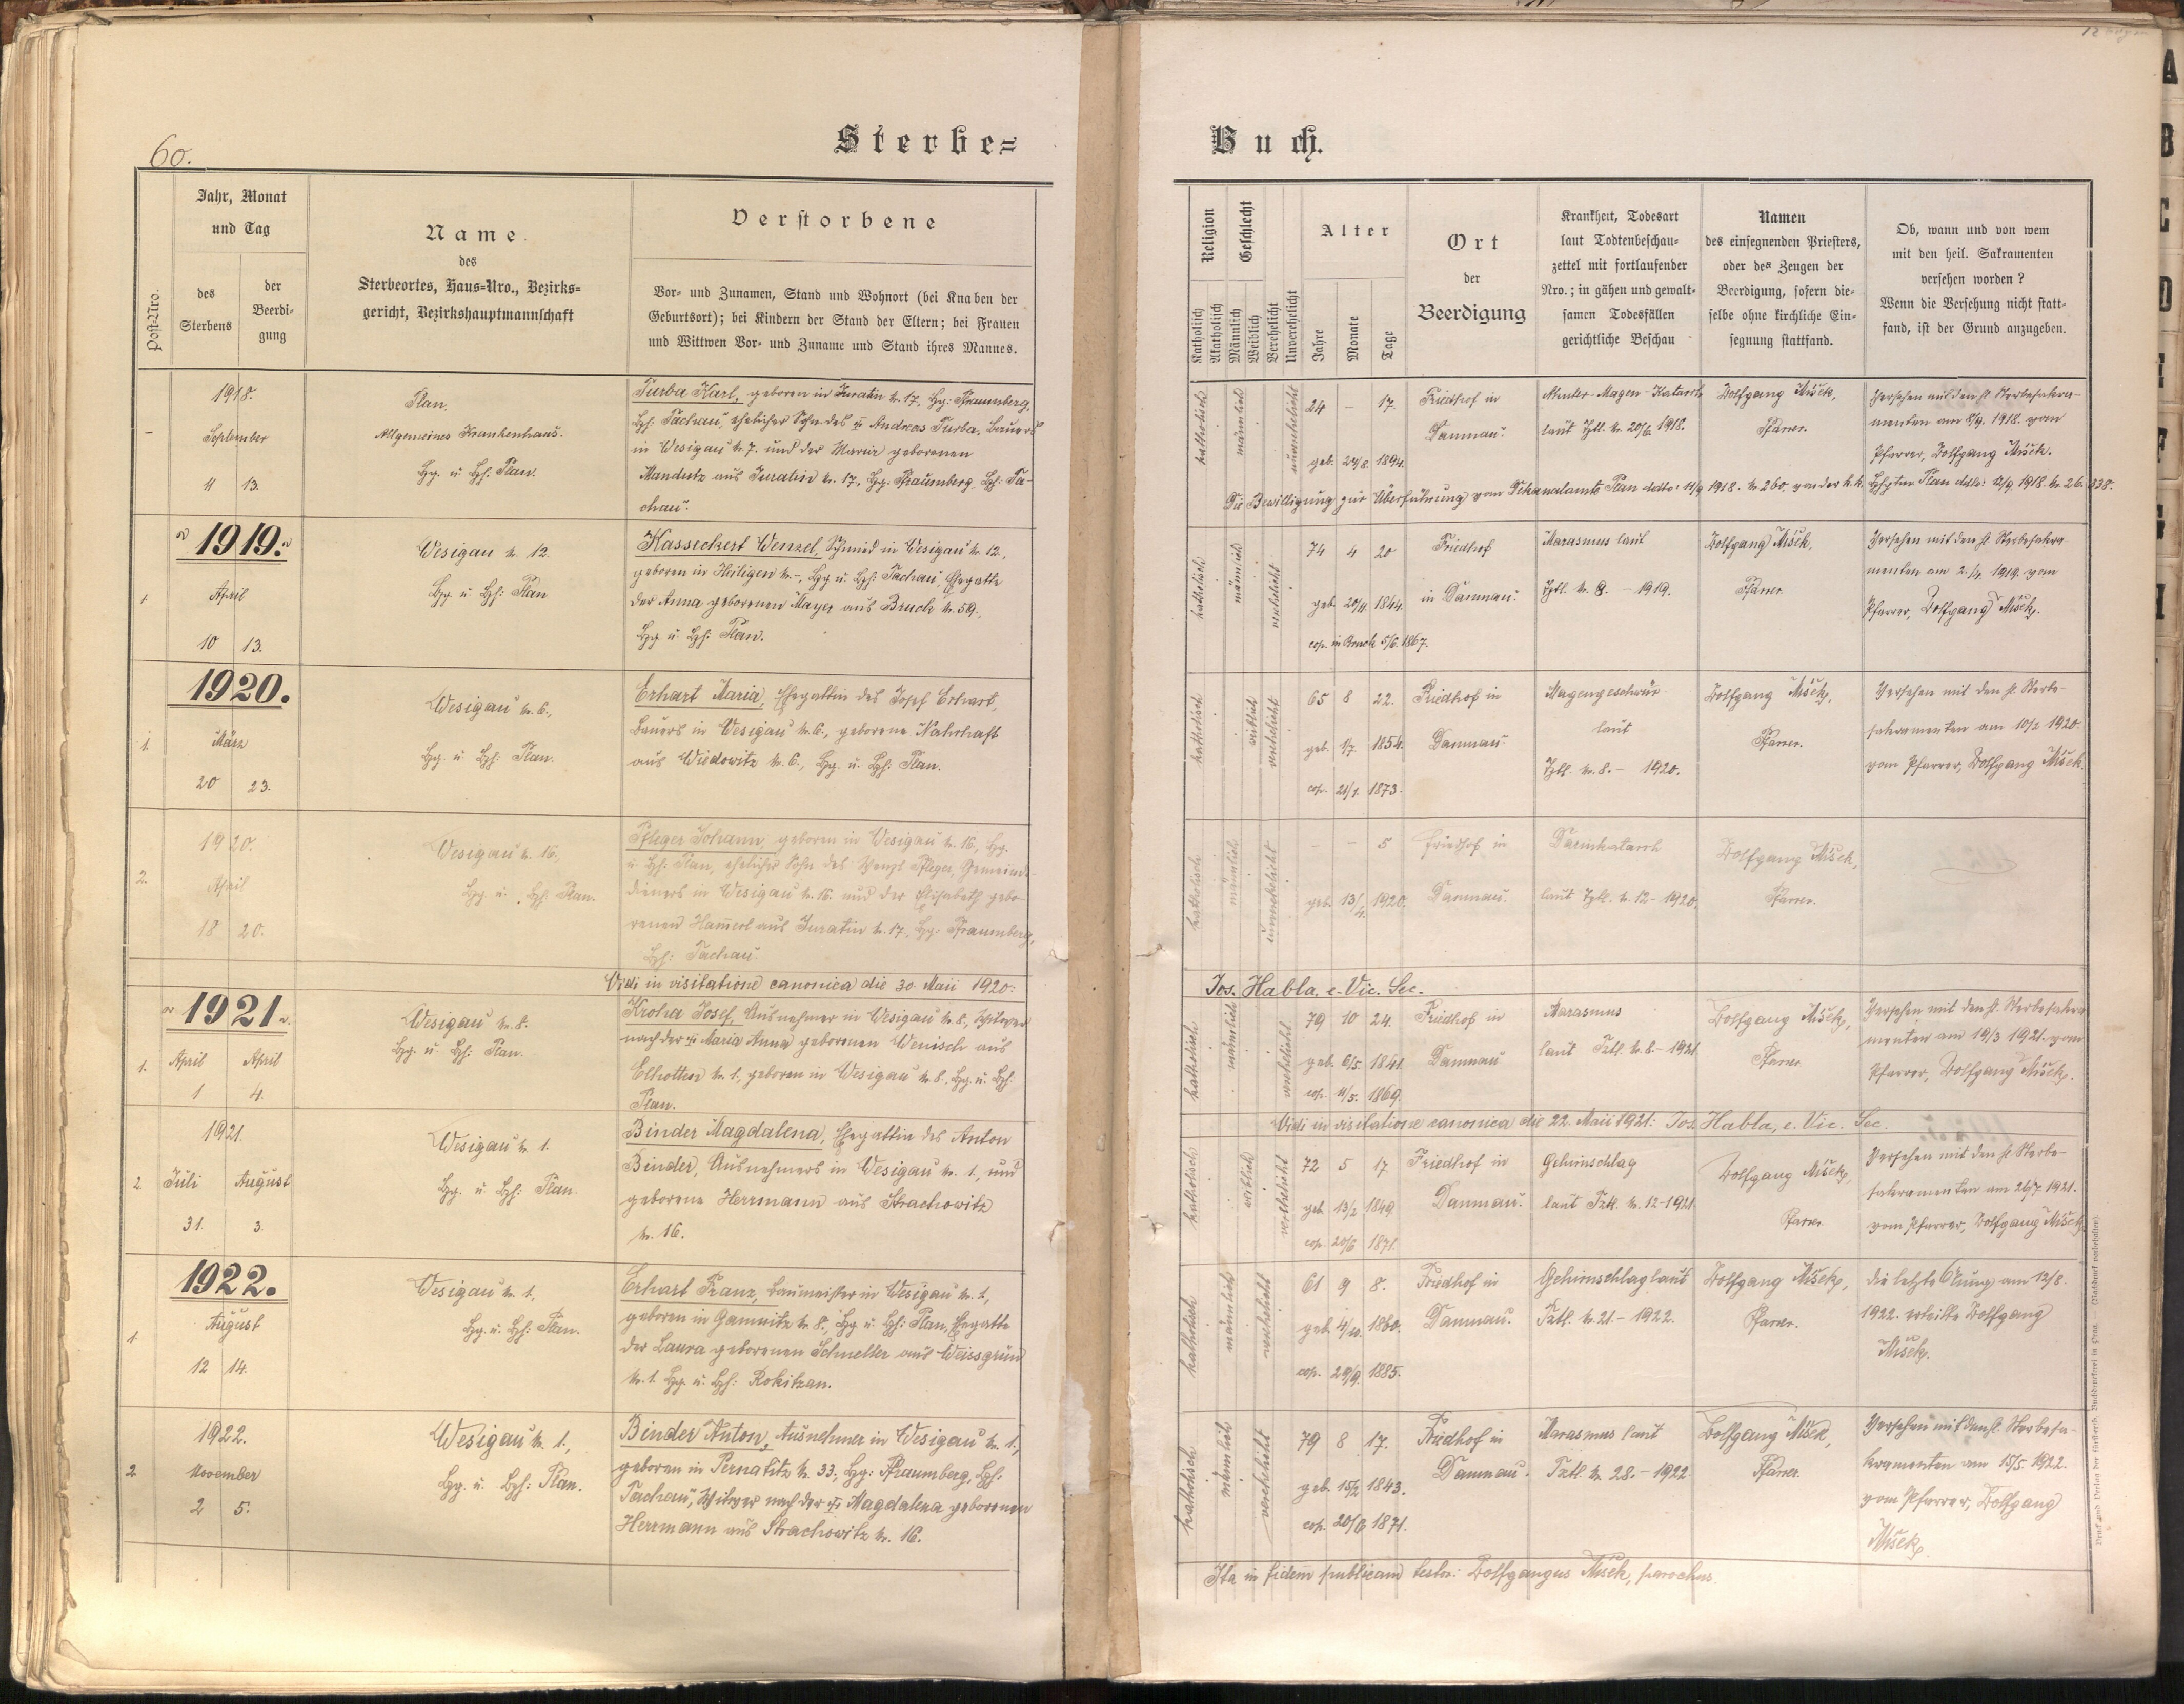 60.
Sterbe=
Buch.
Post-Nro.
Jahr, Monat
und Tag
des
Sterbens
der
Beerdi-
gung
Name
des
Sterbeortes, Haus=Nro., Bezirks=
gericht, Bezirkshauptmannschaft
Verstorbene
Vor- und Zunamen, Stand und Wohnort (bei Knaben der
Geburtsort); bei Kindern der Stand der Eltern; bei Frauen
und Wittwen Vor- und Zuname und Stand ihres Mannes.
Religion
Katholisch
Akatholisch
Geschlecht
Männlich
Weiblich
Verehelicht
Unverehelicht
Alter
Jahre
Monate
Tage
Ort
der
Beerdigung
Krankheit, Todesart
laut Todtenbeschau-
zettel mit fortlaufender
Nro.; in gähen und gewalt-
samen Todesfällen
gerichtliche Beschau
Namen
des einsegnenden Priesters,
oder des Zeugen der
Beerdigung, sofern die-
selbe ohne kirchliche Ein-
segnung stattfand.
Ob, wann und von wem
mit den heil. Sakramenten
versehen worden?
Wenn die Versehung nicht statt-
fand, ist der Grund anzugeben.
1918.
September
11 13.
Plan,
Allgemeines Krankenhaus.
Bg. u. Bh: Plan.
Turba Karl, geboren in Juratin N. 17, Bg: Pfraumberg,
Bh: Tachau, ehelicher Sohn des Andreas Turba, Bauers
in Wesigau N. 7. und der Maria geborenen
aus Juratin N. 17, Bg. Pfraumberg, Bh: Ta-
chau.
katholisch
männlich
unverehelicht
24 – 17.
geb. 24/8. 1894.
Friedhof in
Damnau.
Akuter Magen-Katarrh
laut 1918.
Wolfgang Mišek,
Pfarrer.
Versehen mit den hl. Sterbesakra-
menten am 8/9. 1918. vom
Pfarrer, Wolfgang Mišek.
Die Bewilligung zur Überführung vom Dekanalamte Plan ddto: 11/9 1918. N. 260, von der k. k. Plan ddto: 12/9. 1918. N. 26.338.
1919.
1.
April
10 13.
Wesigau N. 12.
Bg. u. Bh: Plan
Kasseckert Wenzel, Schmied in Wesigau N. 12,
geboren in Heiligen N. –, Bg. u. Bh: Tachau, Ehegatte
der Anna geborenen Mayer aus Bruck N. 59,
Bg. u. Bh: Plan.
katholisch
männlich
verehelicht
74 4 20
geb. 20/11. 1844.
cop. in Bruck 5/6. 1867.
Friedhof
in Damnau.
Marasmus laut
N. 8. – 1919.
Wolfgang Mišek,
Pfarrer.
Versehen mit den hl. Sterbesakra-
menten am 2./4. 1919. vom
Pfarrer, Wolfgang Mišek.
1920.
1.
März
20 23.
Wesigau N. 6.,
Bg. u. Bh: Plan.
Erhart Maria, Ehegattin des Josef Erhart,
Bauers in Wesigau N. 6., geborene Nahrhaft
aus Wiedowitz N. 6., Bg. u. Bh: Plan.
katholisch
weiblich
verehelicht
65 8 22.
geb. 1/7. 1854.
cop. 21/7. 1873.
Friedhof in
Damnau.
Magengeschwür
laut
N. 8. – 1920.
Wolfgang Mišek,
Pfarrer.
Versehen mit den hl. Sterbe-
sakramenten am 10/2 1920.
vom Pfarrer, Wolfgang Mišek.
2.
1920.
April
18 20.
Wesigau N. 16,
Bg. u. Bh: Plan.
Pfleger Johann, geboren in Wesigau N. 16, Bg.
u. Bh: Plan, ehelicher Sohn des Wenzl Pfleger, Gemeinde-
dieners in Wesigau N. 16. und der Elisabeth gebo-
renen Hammerl aus Juratin N. 17, Bg. Pfraumberg,
Bh: Tachau.
katholisch
männlich
unverehelicht
– – 5
geb. 13/4. 1920.
Friedhof in
Damnau.
Darmkatarrh
laut N. 12 – 1920.
Wolfgang Mišek,
Pfarrer.
Vidi in visitatione canonica die 30. Maii 1920:
Jos. Habla, e. Vic. Sec.
1921.
1.
April April
1 4.
Wesigau N. 8.
Bg. u. Bh: Plan.
Kroha Josef, Ausnehmer in Wesigau N. 8., Witwer
nach der Maria Anna geborenen Wenisch aus
Elhotten N. 1., geboren in Wesigau N. 8., Bg. u. Bh.
Plan.
katholisch
männlich
verehelicht
79 10 24.
geb. 6/5. 1841.
cop. 11/5. 1869.
Friedhof in
Damnau
Marasmus
laut N. 8. – 1921.
Wolfgang Mišek,
Pfarrer.
Versehen mit den hl. Sterbesakra-
menten am 19/3 1921. vom
Pfarrer, Wolfgang Mišek.
Vidi in visitatione canonica die 22. Maii 1921: Jos. Habla, e. Vic. Sec.
2.
1921.
Juli August
31. 3.
Wesigau N. 1.
Bg. u. Bh: Plan.
Binder Magdalena, Ehegattin des Anton
Binder, Ausnehmers in Wesigau N. 1., und
geborene Herrmann aus Strachowitz
N. 16.
katholisch
weiblich
verehelicht
72 5 17.
geb. 13/2 1849.
cop. 20/6 1871.
Friedhof in
Damnau.
Gehirnschlag
laut N. 12 – 1921.
Wolfgang Mišek,
Pfarrer.
Versehen mit den hl. Sterbe-
sakramenten am 26/7 1921.
vom Pfarrer, Wolfgang Mišek.
1922.
1.
August
12 14.
Wesigau N. 1.
Bg. u. Bh: Plan.
Erhart Franz, Baumeister in Wesigau N. 1,
geboren in Gamnitz N. 8., Bg. u. Bh: Plan, Ehegatte
der Laura geborenen Schneller aus Weissgrün
N. 1. Bg. u. Bh: Rokitzan.
katholisch
männlich
verehelicht
61 9 8.
geb. 4/11. 1860.
cop. 1885.
Friedhof in
Damnau.
Gehirnschlag laut
N. 21. – 1922.
Wolfgang Mišek,
Pfarrer.
Die letzte Ölung am 12/8.
1922. erteilte Wolfgang
Mišek.
2.
1922.
November
2 5.
Wesigau N. 1.,
Bg. u. Bh: Plan.
Binder Anton, Ausnehmer in Wesigau N. 1.,
geboren in Pernatitz N. 33., Bg: Pfraumberg, Bh:
Tachau, Witwer nach der Magdalena geborenen
Herrmann aus Strachowitz N. 16.
katholisch
männlich
verehelicht
79 8 17.
geb. 15/2. 1843.
cop. 20/6 1871.
Friedhof in
Damnau.
Marasmus laut
N. 28. – 1922.
Wolfgang Mišek,
Pfarrer.
Versehen mit den hl. Sterbesa-
kramenten am 15/5. 1922.
vom Pfarrer, Wolfgang
Mišek.
Ita in fidem publicam testor: Wolfgangus Mišek, parochus.